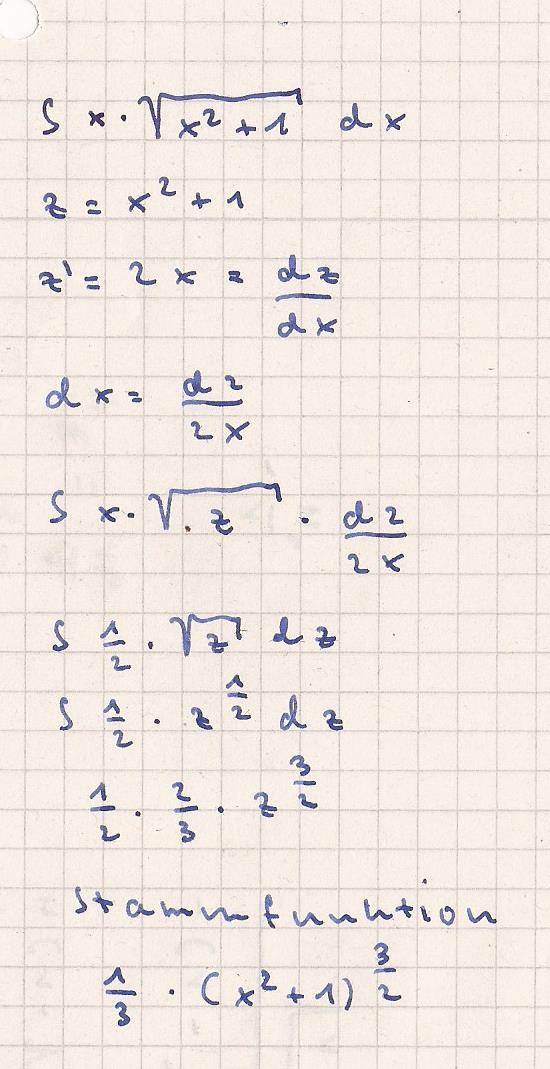 ∫ x · √(x² + 1) dx
z = x² + 1
z' = 2x = dz/dx
dx = dz/2x
∫ x · √z · dz/2x
∫ 1/2 · √z dz
∫ 1/2 · z^(1/2) dz
1/2 · 2/3 · z^(3/2)
Stammfunktion
1/3 · (x² + 1)^(3/2)